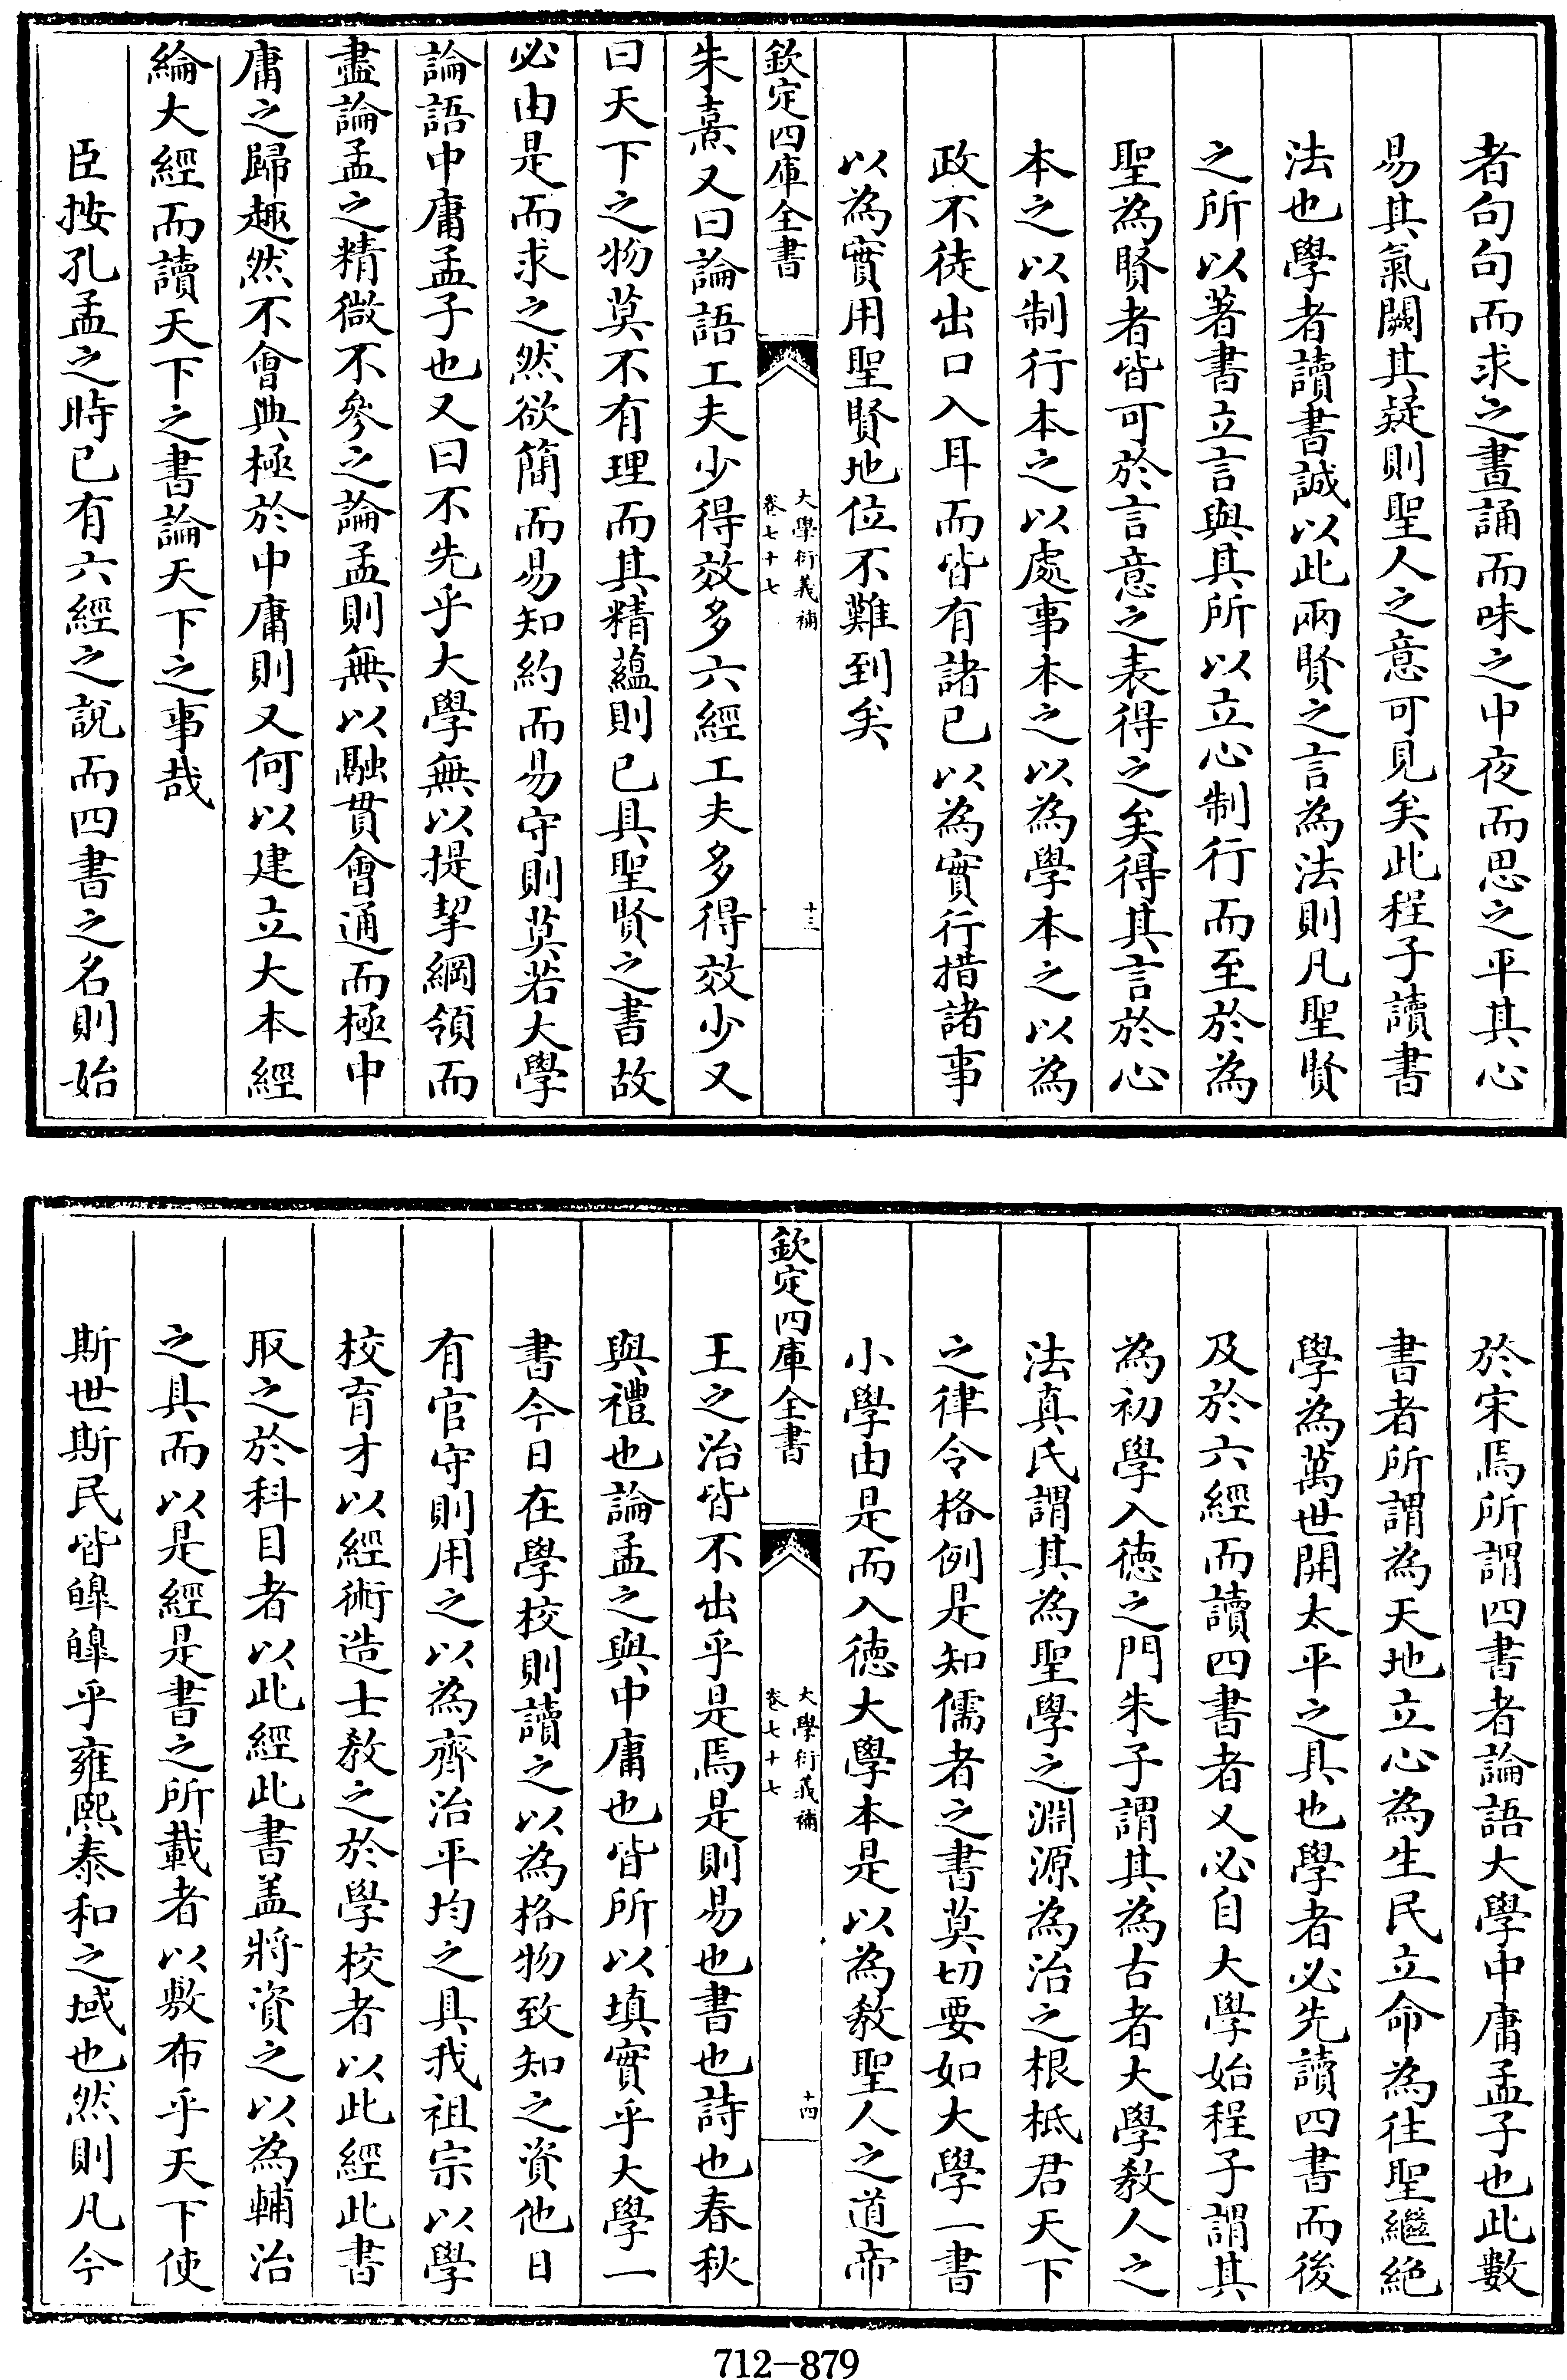 者句句而求之晝誦而味之中夜而思之平其心
易其氣闕其疑則聖人之意可見矣此程子讀書
法也學者讀書誠以此兩賢之言為法則凡聖賢
之所以著書立言與其所以立心制行而至於為
聖為賢者皆可於言意之表得之矣得其言於心
本之以制行本之以處事本之以為學本之以為
政不徒出口入耳而皆有諸已以為實行措諸事
以為實用聖賢地位不難到矣
欽定四庫全書
大學衍義補
卷七十七
十三
朱熹又曰論語工夫少得效多六經工夫多得效少又
曰天下之物莫不有理而其精蘊則已具聖賢之書故
必由是而求之然欲簡而易知約而易守則莫若大學
論語中庸孟子也又曰不先乎大學無以提挈綱領而
盡論孟之精微不參之論孟則無以融貫會通而極中
庸之歸趣然不會典極於中庸則又何以建立大本經
綸大經而讀天下之書論天下之事哉
臣按孔孟之時已有六經之說而四書之名則始
於宋焉所謂四書者論語大學中庸孟子也此數
書者所謂為天地立心為生民立命為往聖繼絶
學為萬世開太平之具也學者必先讀四書而後
及於六經而讀四書者又必自大學始程子謂其
為初學入徳之門朱子謂其為古者大學教人之
法真氏謂其為聖學之淵源為治之根柢君天下
之律令格例是知儒者之書莫切要如大學一書
小學由是而入徳大學本是以為教聖人之道帝
欽定四庫全書
大學衍義補
卷七十七
十四
王之治皆不出乎是焉是則易也書也詩也春秋
與禮也論孟之與中庸也皆所以填實乎大學一
書今日在學校則讀之以為格物致知之資他日
有官守則用之以為齊治平均之具我祖宗以學
校育才以經術造士教之於學校者以此經此書
取之於科目者以此經此書盖將資之以為輔治
之具而以是經是書之所載者以敷布乎天下使
斯世斯民皆皥皥乎雍熙泰和之域也然則凡今
712—879